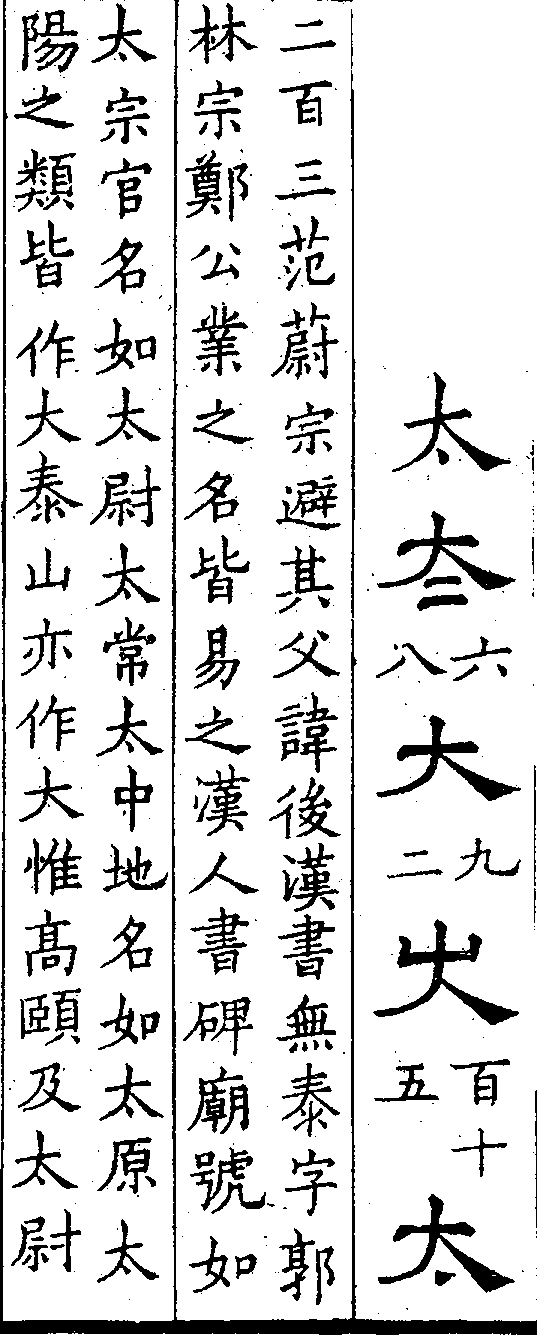 太夳六八大九二百十五太
二百三范蔚宗避其父諱後漢書無泰字郭
林宗鄭公業之名皆易之漢人書碑廟號如
太宗官名如太尉太常太中地名如太原太
陽之類皆作大泰山亦作大惟髙頤及太尉